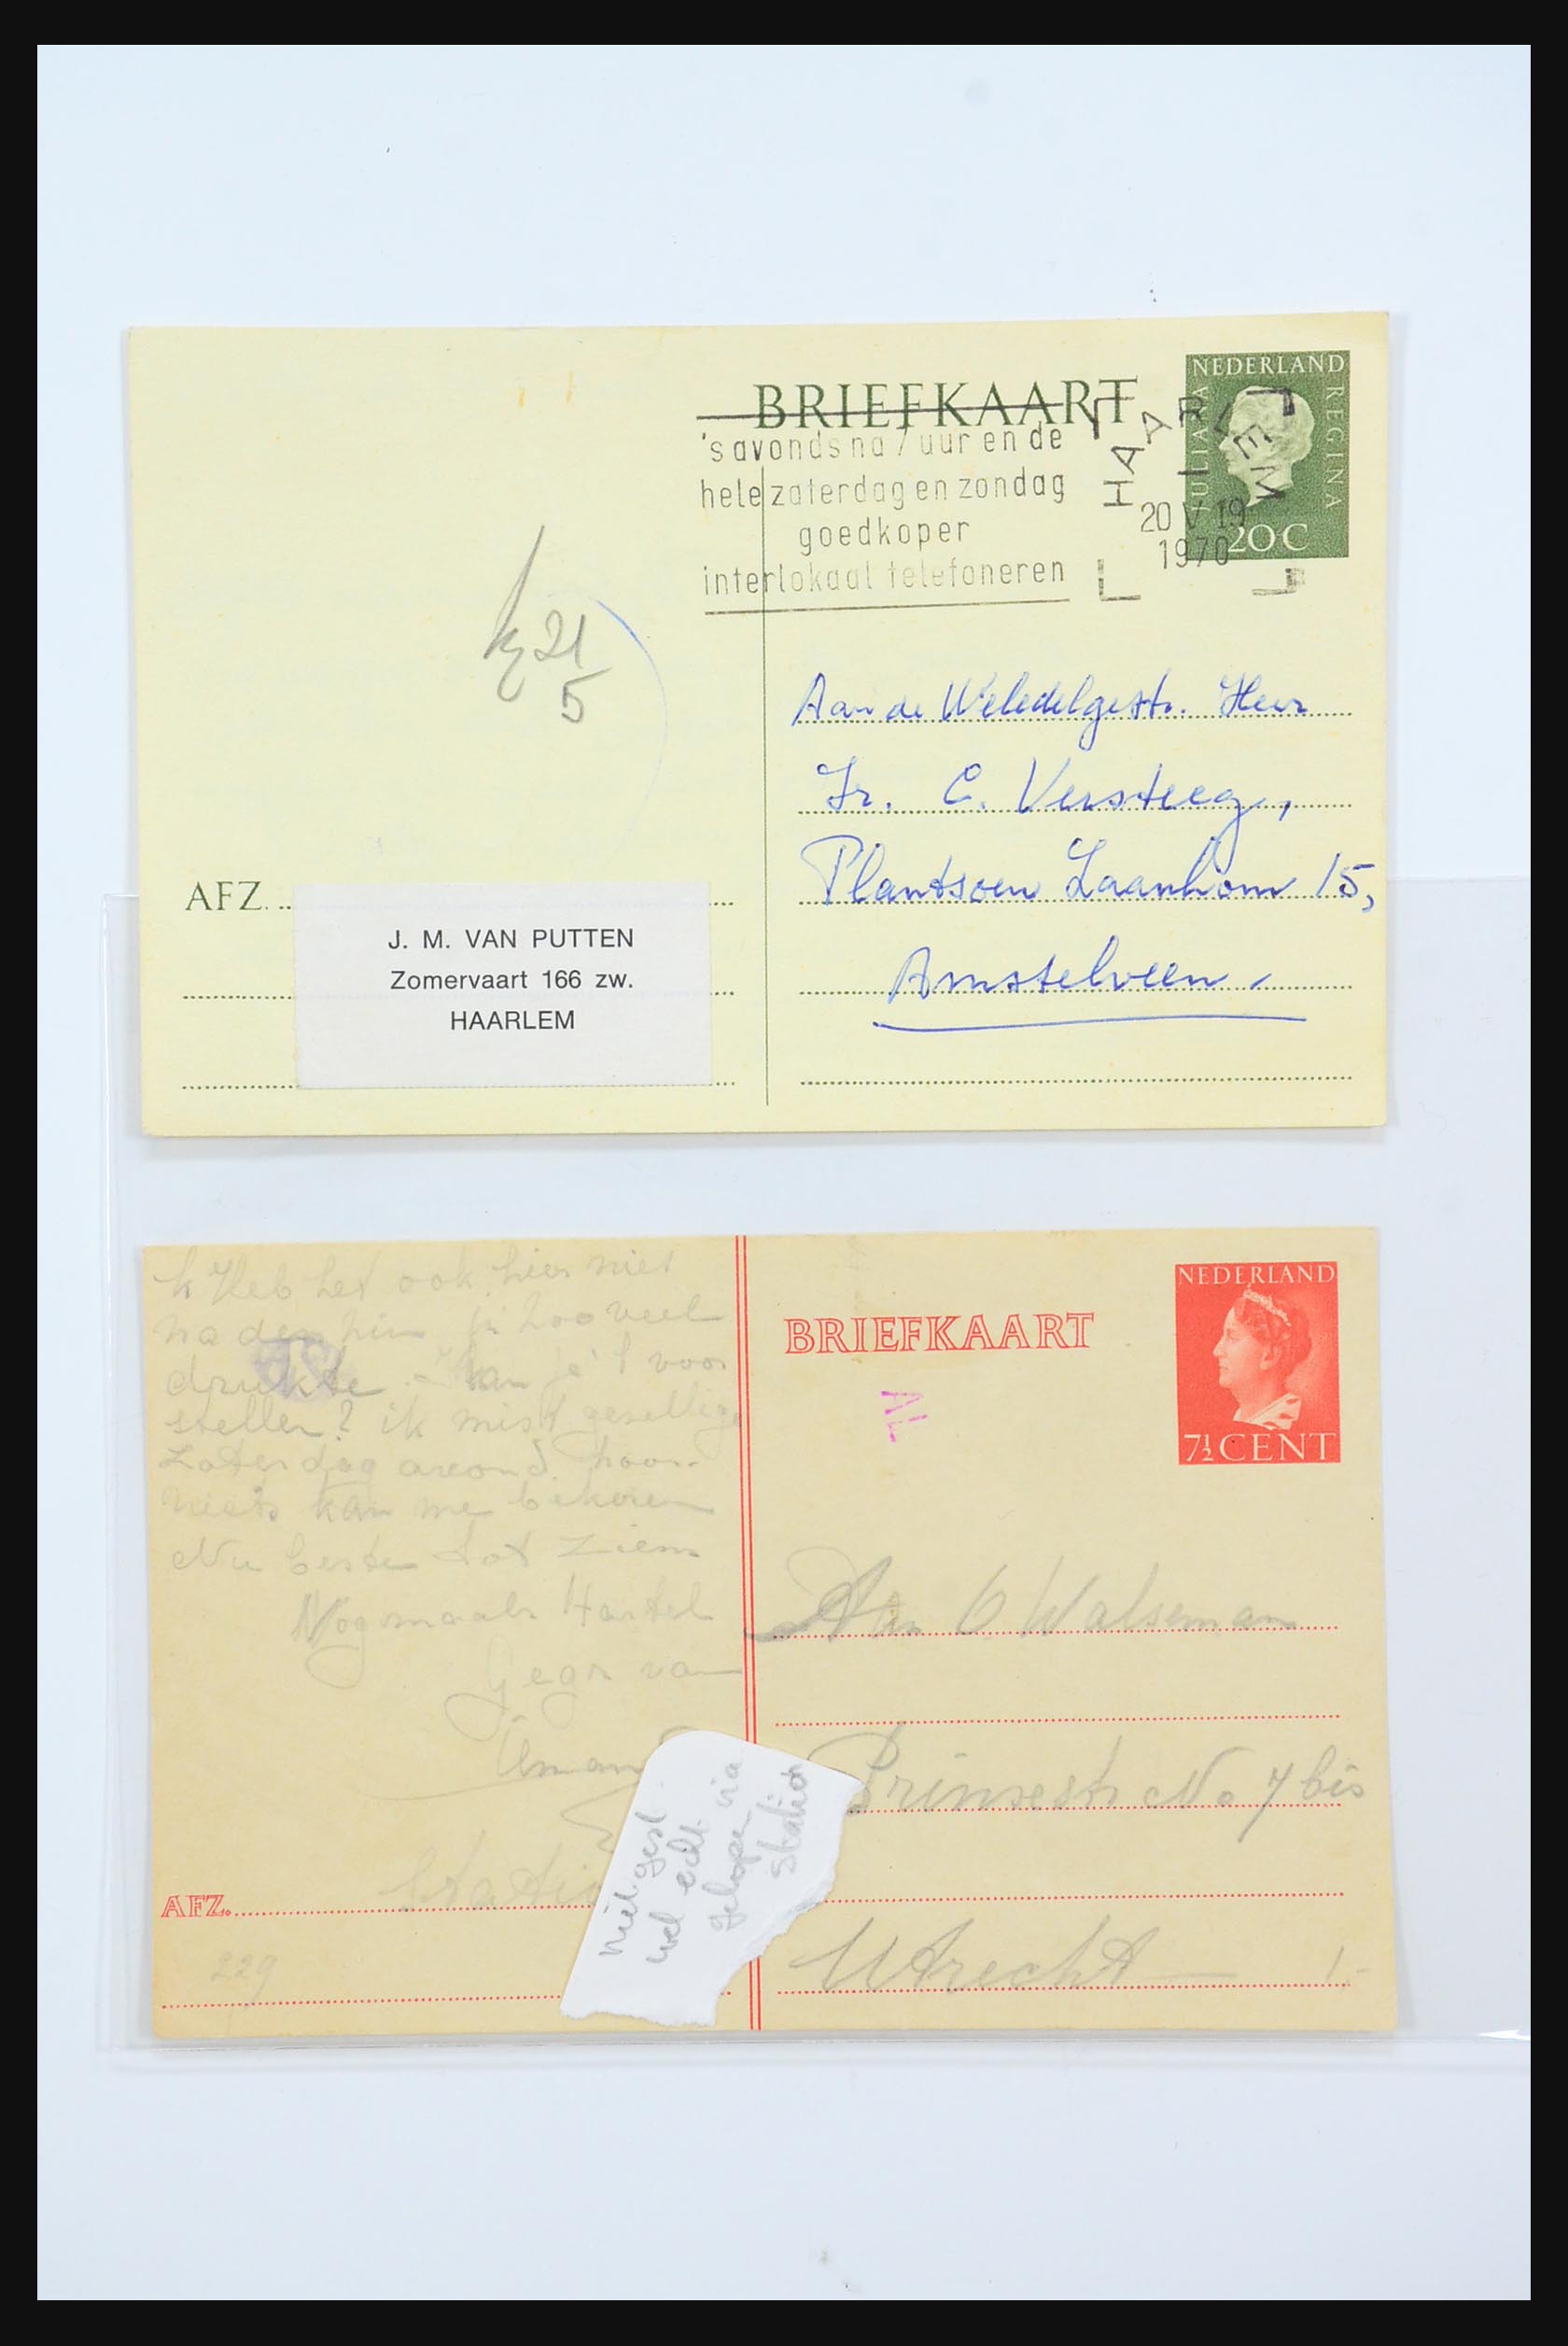 BRIEFKAART
NEDERLAND
JULIANA
REGINA
20 C
's avonds na 7 uur en de
hele zaterdag en zondag
goedkoper
interlokaal telefoneren
HAARLEM
20 V 19
1970
21
5
Aan de Weledelgestr. Heer
Ir. C. Versteeg,
Plantsoen Laanhorn 15,
Amstelveen
AFZ.
J. M. VAN PUTTEN
Zomervaart 166 zw.
HAARLEM
k Heb het ook hier niet
naden zin zoo veel
drukte. Kan je 't voor
stellen? ik mist gezellige
Zaterdag avond. hoor.
niets kan me bekoren
Nu beste tot ziens
Nogmaals Hartel
Gegr van
BRIEFKAART
NEDERLAND
7½ CENT
AL
Aan C Walseman
Prinsestr No 7 bis
Utrecht
1.-
AFZ.
229
niet gest
wel echt
gelopen via
station